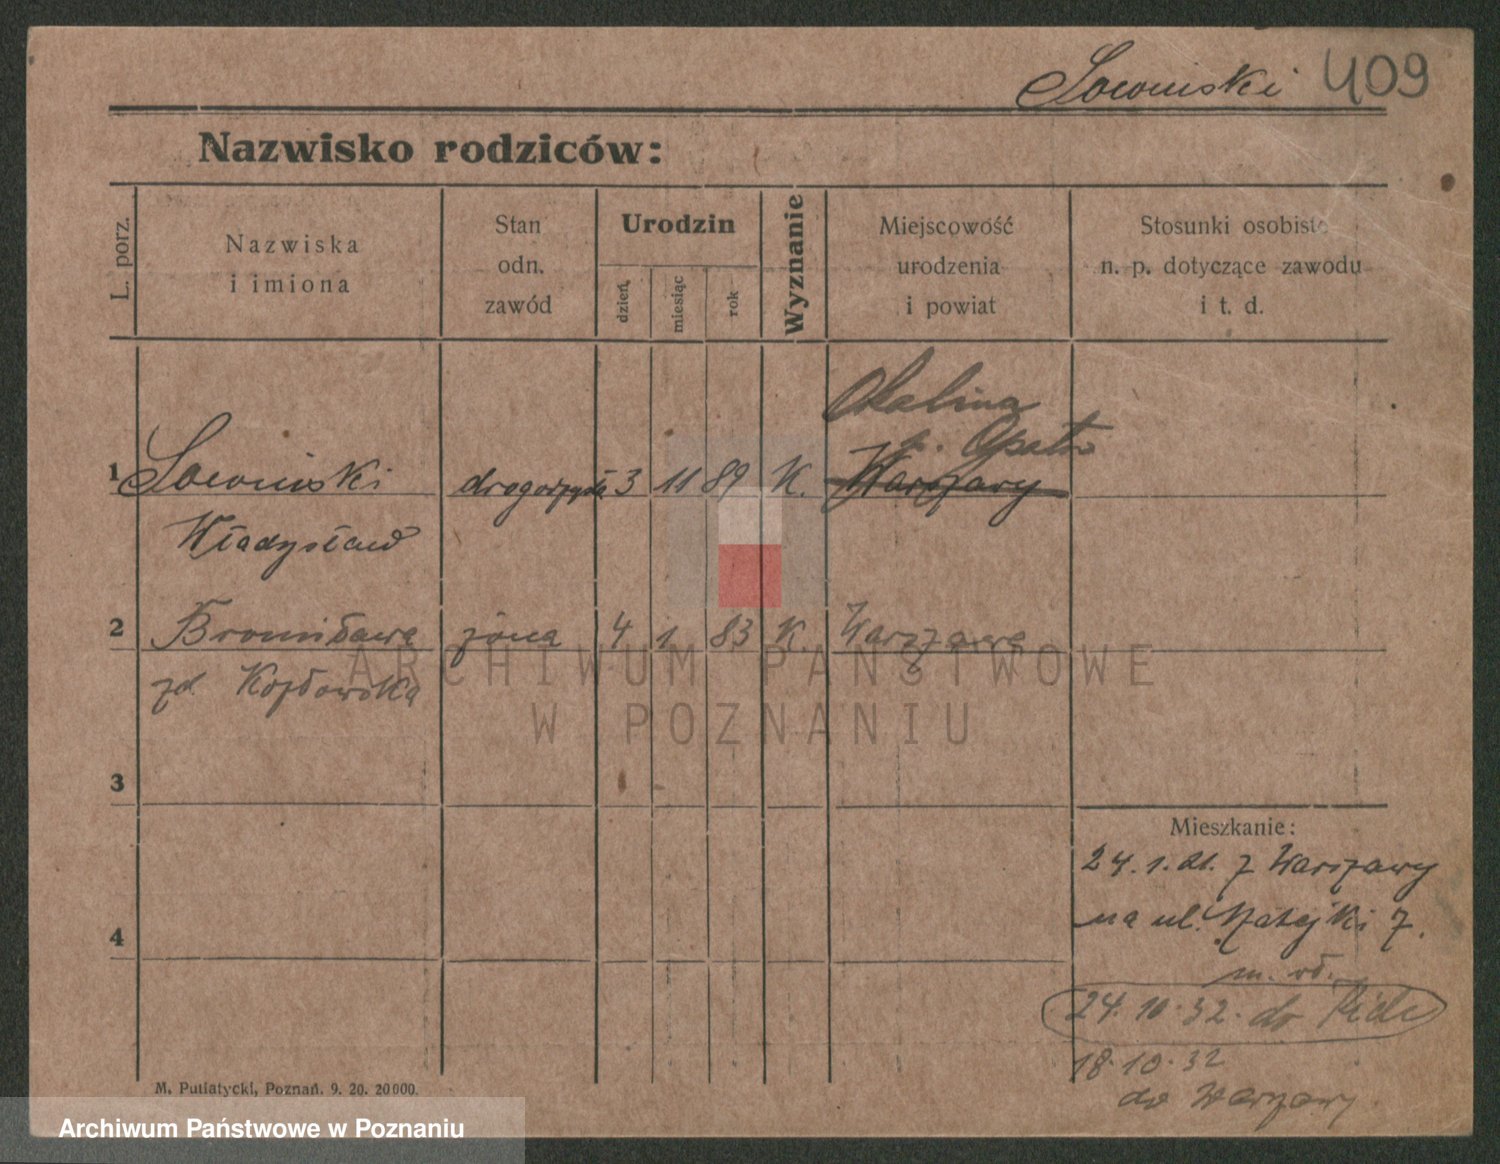 Sowiński 409
Nazwisko rodziców:
L. porz.
Nazwiska
i imiona
Stan
odn.
zawód
Urodzin
dzień
miesiąc
rok
Wyznanie
Miejscowość
urodzenia
i powiat
Stosunki osobiste
n. p. dotyczące zawodu
i t. d.
Okalina
p. Opatów
1 drogorzysta 3 11 89 K. Warszawy
Władysław
2 Bronisława żona 4 1 83 K. Warszawa
zd. Kozłowska
3
4
Mieszkanie:
24.1.21. z Warszawy
na ul. Matejki 7.
m. wł.
24.10.32. do
18.10.32
do Warszawy
M. Putiatycki, Poznań. 9. 20. 20000.
ARCHIWUM PAŃSTWOWE
W POZNANIU
Archiwum Państwowe w Poznaniu